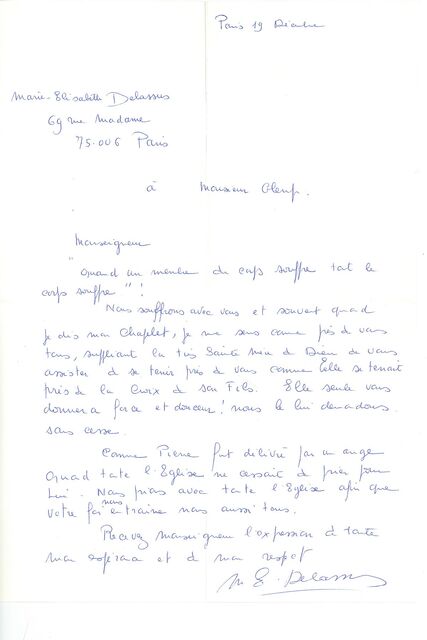 Paris 19 Décembre
Marie-Elisabeth Delassus
69 rue Madame
75.006 Paris
à Monsieur Glemp.
Monseigneur
"Quand un membre du corps souffre tout le
corps souffre" !
Nous souffrons avec vous et souvent quand
je dis mon Chaplet, je me sens comme près de vous
tous, suppliant la très Sainte Mère de Dieu de vous
assister de se tenir près de vous comme Elle se tenait
près de la Croix de son Fils. Elle seule vous
donnera force et douceur ! nous le lui demandons
sans cesse.
Comme Pierre fut délivré par un ange
quand toute l'Eglise ne cessait de prier pour
lui. Nous prions avec toute l'Eglise afin que
votre foi nous entraine nous aussi tous.
Recevez Monseigneur l'expression de toute
mon espérance et de mon respect
M E. Delassus